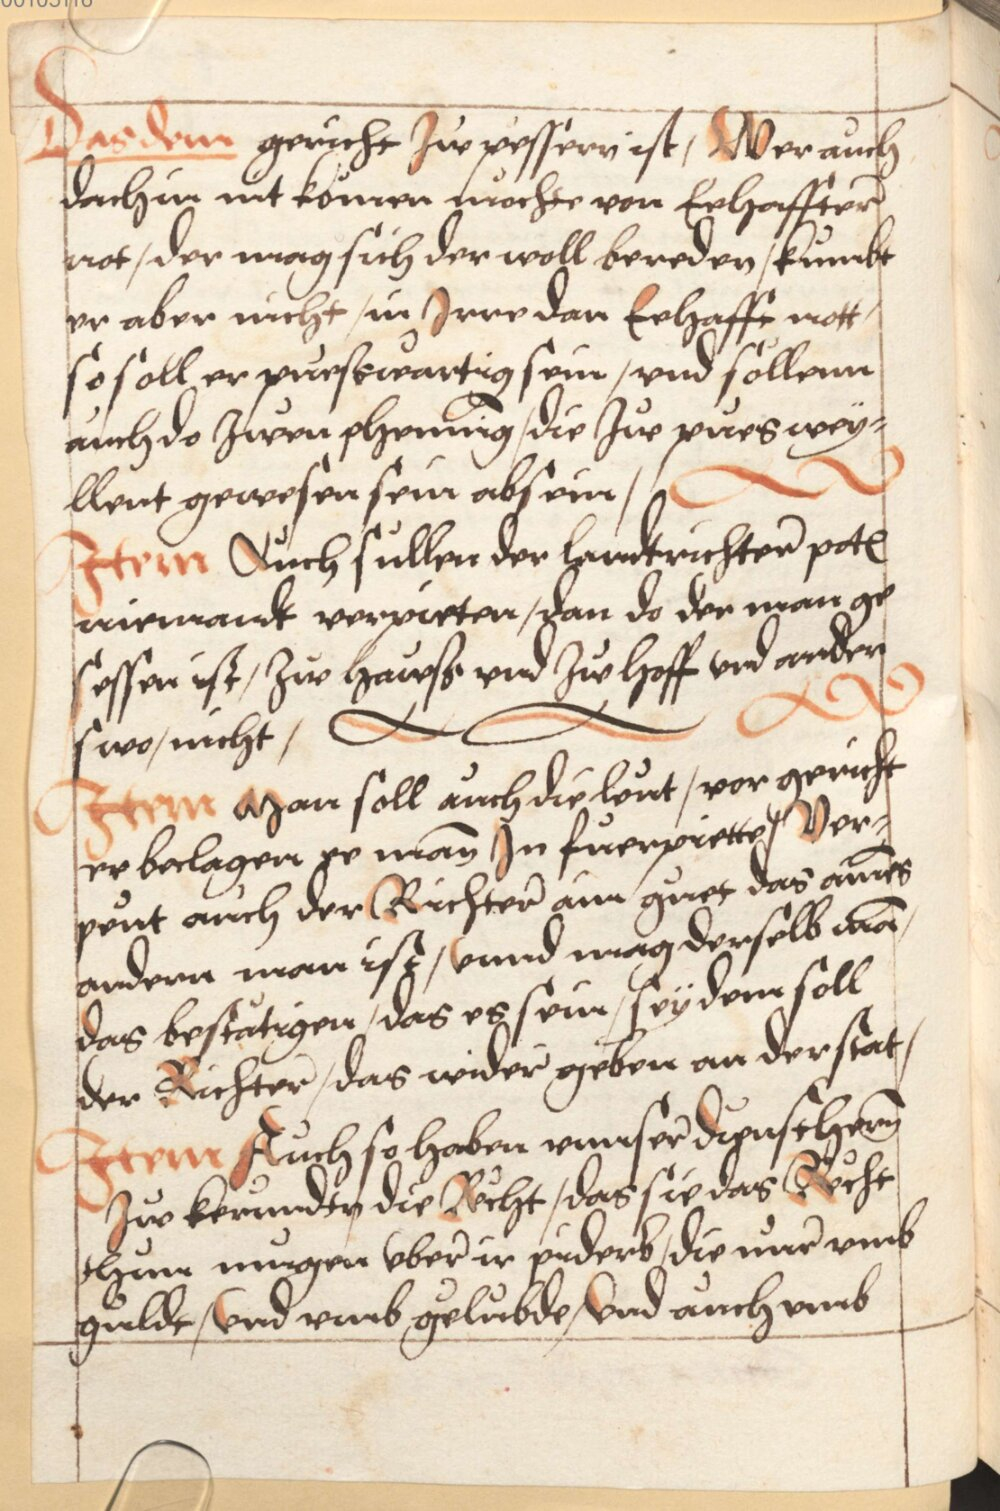 Das dem gericht zw pessern ist / Wer auch
dachin nit komen mochte von Eehaffter
not / der mag sich der woll bereden / kumbt
er aber nicht / in Irre dan Eehafft nott /
so soll er puesswartig sein / vnd sollenn
auch do zwen phennig / die zw pues wey-
llent gewesen sein absein /
Item Auch sullen der landtrichter pot
niemandt verpieten / dan do der man ge
sessen ist / zw hawss vnd zw hoff vnd ander
swo / nicht /
Item Man soll auch die leut / vor gericht
er beclagen ee man In fuerpiette / Ver-
peut auch der Richter ain guet das aines
andern man ist / vnnd mag derselb man /
das bestätigen / das es sein sey dem soll
der Richter / das wider geben an der stat /
Item Auch so haben vnnser dienstherrn
zw kernndtn die Recht / das sie das Recht
thun mugen vber ir piderb / die nur vmb
guldt / vnd vmb gelubde / vnd auch vmb